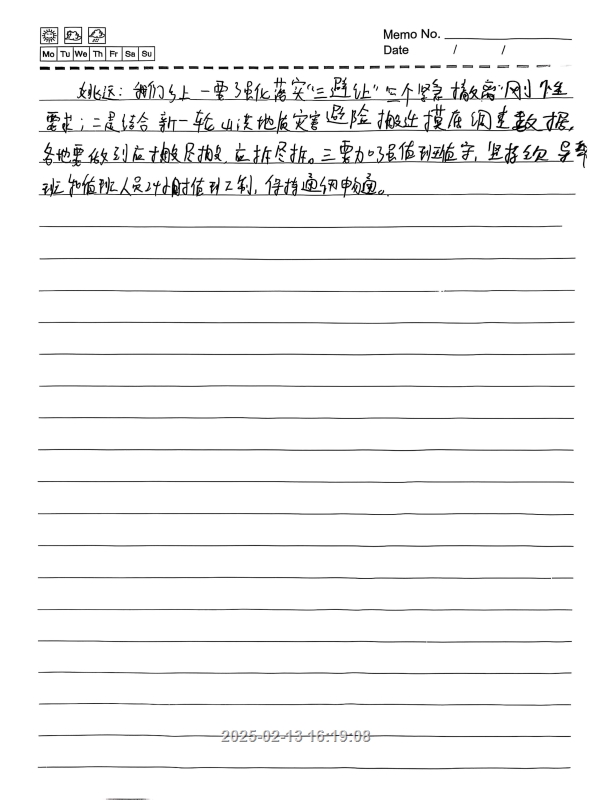 Memo No.
Mo Tu We Th Fr Sa Su
Date / /
姚远：我们乡上一要强化落实“三避让”“三个紧急撤离”刚性
要求；二是结合新一轮山洪地质灾害避险搬迁摸底调查数据，
各地要做到应搬尽搬，应拆尽拆。三要加强值班值守，坚持领导带
班和值班人员24小时值班工制，保持通讯畅通。
2025-02-13 16:19:08